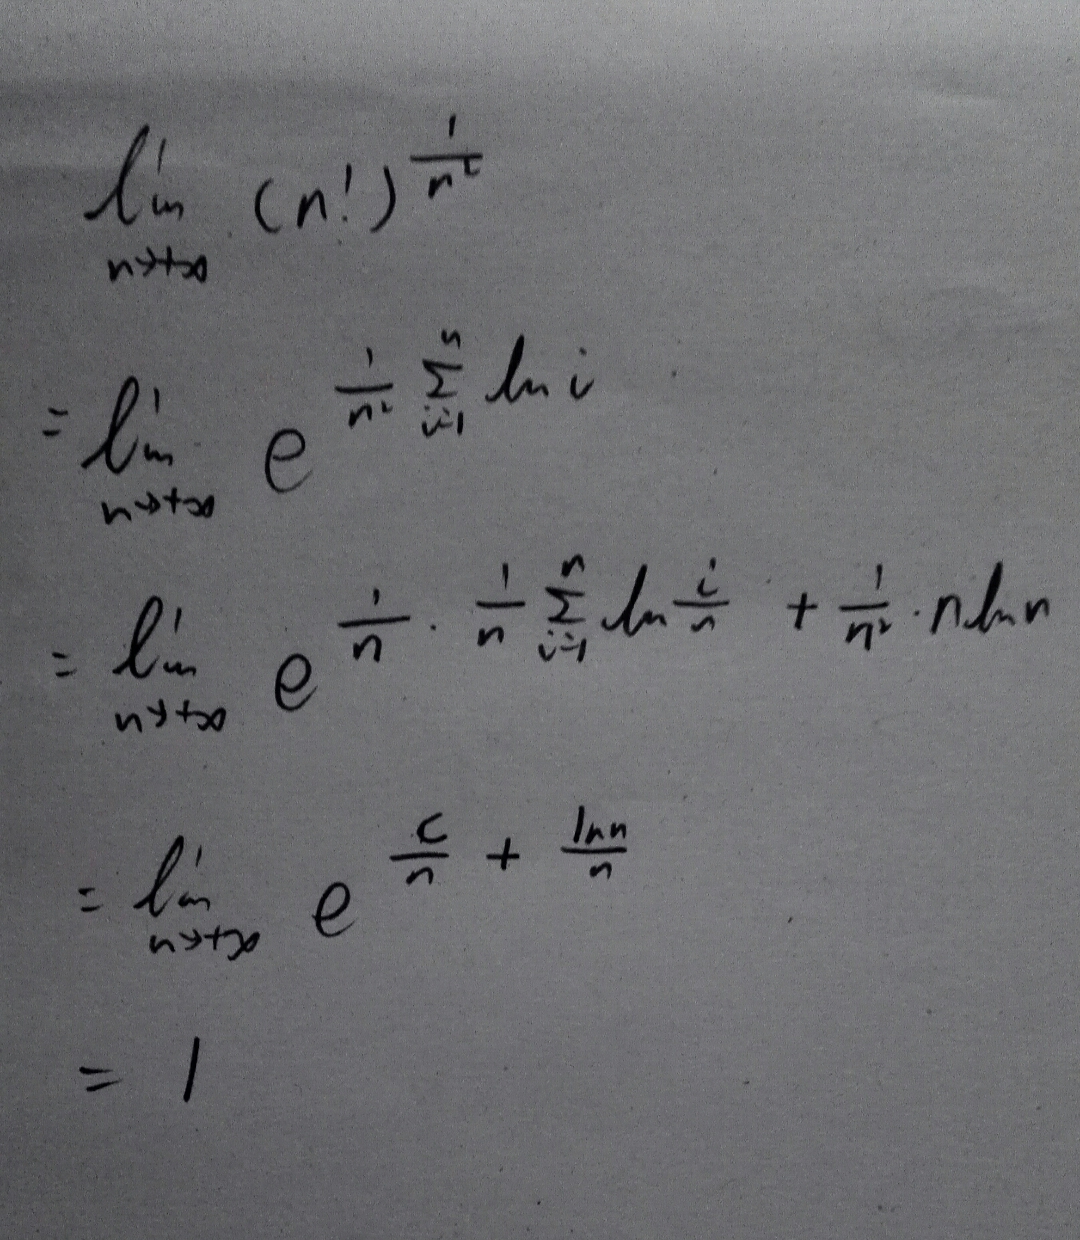 lim_{n→+∞} (n!)^{1/n²}
= lim_{n→+∞} e^{1/n² Σ_{i=1}^{n} ln i}
= lim_{n→+∞} e^{1/n · 1/n Σ_{i=1}^{n} ln i/n + 1/n² · n ln n}
= lim_{n→+∞} e^{c/n + ln n/n}
= 1